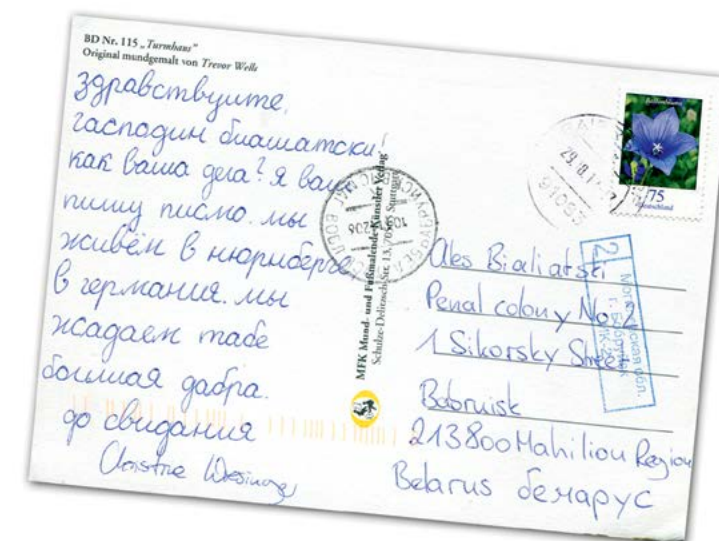 BD Nr. 115 „Turmhaus“
Original mundgemalt von Trevor Wells
здравствуите,
гасподин биашатски!
как ваша дела? я вам
пишу писмо. мы
живём в нюрнберге
в германия. мы
жадаем табе
большая дабра.
до свидания
Christine
MFK Mund- und Fußmalende Künstler Verlag
Schulze-Delitzsch-Str. 13, 70565 Stuttgart
75
Deutschland
91053
Ales Bialiatski
Penal colony No 2
1 Sikorsky Street
Bobruisk
213800 Mahiliou Region
Belarus беларус